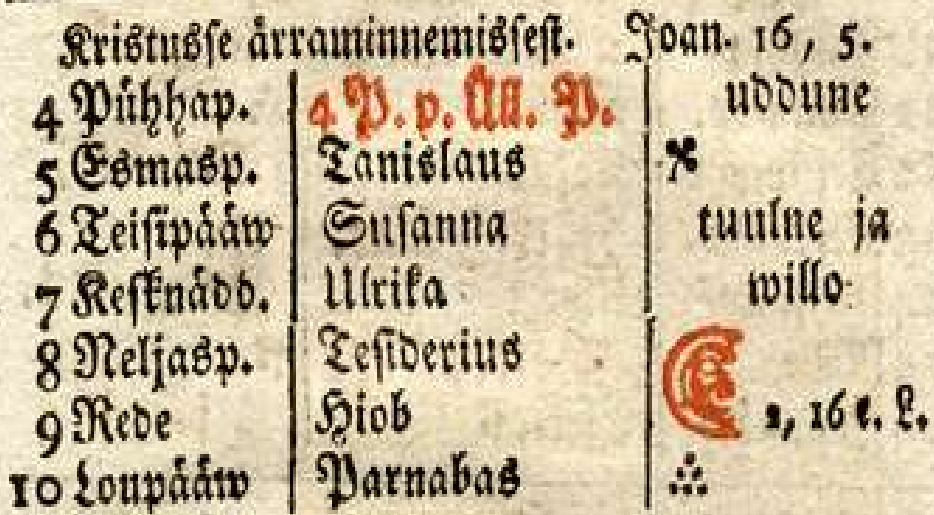 Kristusse ärraminnemissest. Joan. 16, 5.
4 Pühhap. 4 P. p. Ül. P. uddune
5 Esmasp. Tanislaus
6 Teisipääw Susanna tuulne ja
7 Kesknädd. Ulrika willo
8 Neljasp. Tesiderius
9 Rede Hiob 2, 16 e. L.
10 Loupääw Parnabas